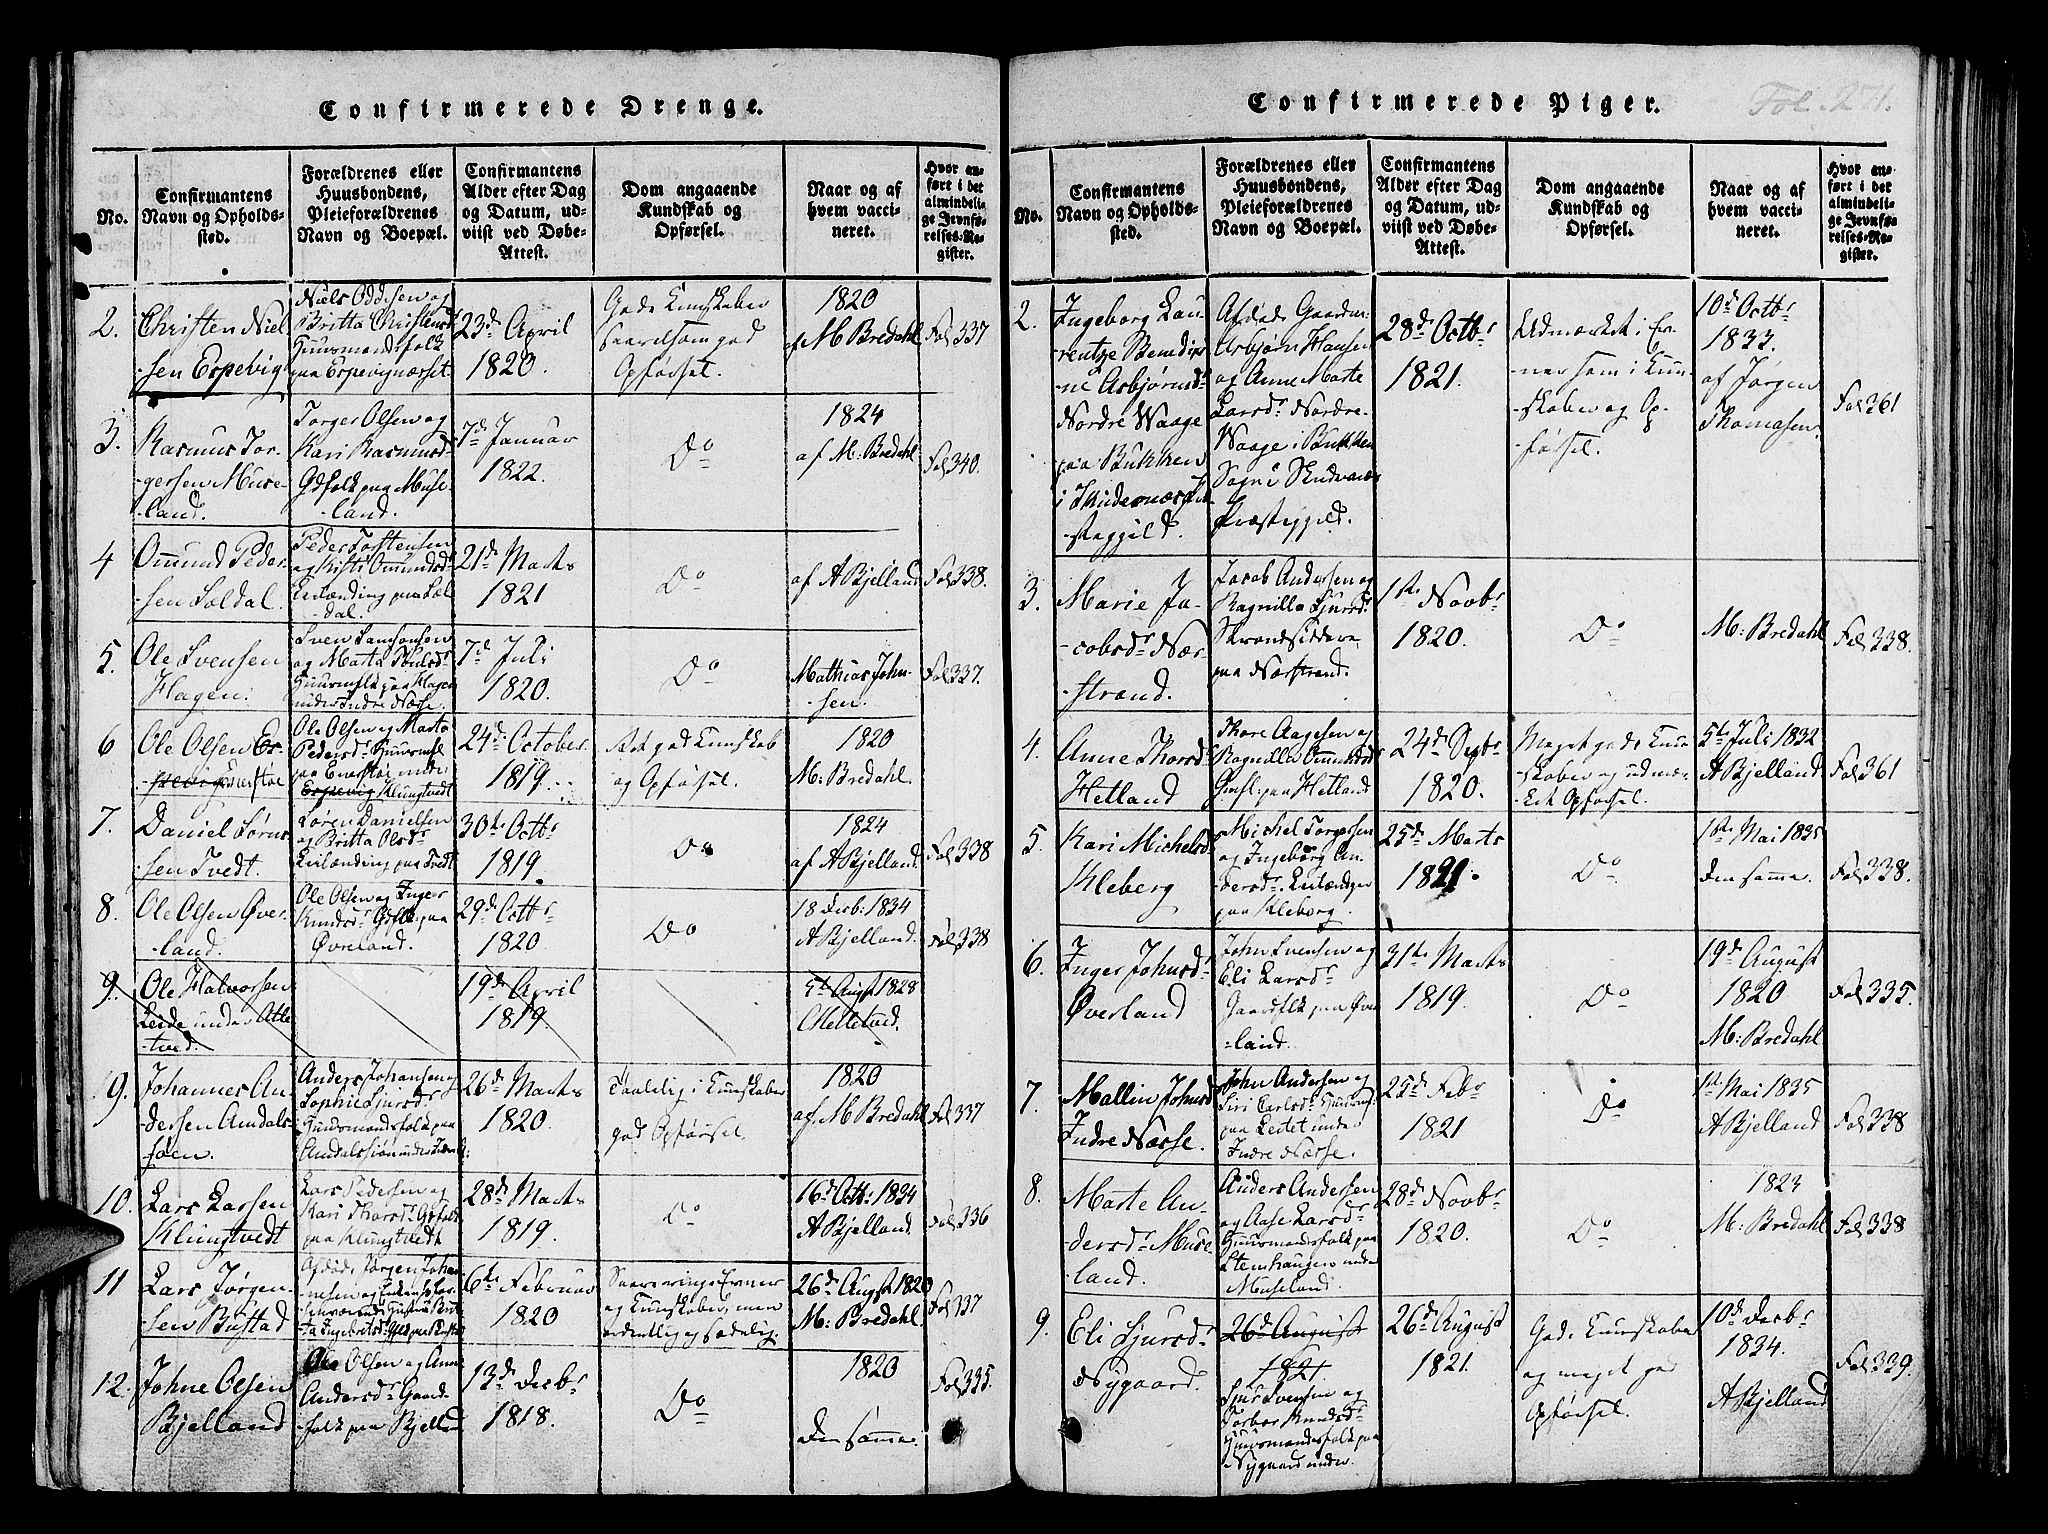 Confirmerede Drenge.
No.
Confirmantens
Navn og Opholds-
sted.
Forældrenes eller
Huusbondens,
Pleieforældrenes
Navn og Boepæl.
Confirmantens
Alder efter Dag
og Datum, ud-
viist ved Døbe-
Attest.
Dom angaaende
Kundskab og
Opførsel.
Naar og af
hvem vacci-
neret.
Hvor an-
ført i det
almindeli-
ge Jevnfø-
relses-Re-
gister.
2.
Christen Niel
-sen Erpevig
Niels Oddsen og
Britta Christensdr
Huusmandsfolk
paa Erpevignæset
23d April
1820.
Gode Kundskaber
saavelsom god
Opførsel.
1820
af M Bredahl
Fol 337
3.
Rasmus Tor-
gersen Muse-
land.
Torger Olsen og
Kari Rasmusd
Gdfolk paa Muse-
land.
7d Januar
1822.
Do
1824
af M: Bredahl
Fol 340.
4
Ommund Peder
-sen Søldal.
Peder Torstensen
og Kisti Ommundsd
Leilænding paa Søl
-dal.
21d Marts
1821
Do
af A Bjelland
Fol 338.
5.
Ole Svensen
Hagen.
Sven Samsonsen
og Marta Poulsdr
Huusmflk paa Hagen
under Indre Næse.
7d Juli
1820.
Do
Mathias John-
sen.
Fol 337.
6
Ole Olsen Er-
Ole Olsen og Marta
Pedersdr Huusmfl
paa Enestøl under
Erpevig Klungtvedt
24d October
1819.
Ret god Kundskab
og Opførsel.
1820
M: Bredahl.
7.
Daniel Søren
sen Tvedt.
Søren Danielsen
og Britta Olsdr
Leilænding paa Tvedt
30te Octbr
1819.
Do
1824
af A Bjelland.
Fol 338
8.
Ole Olsen Øver
-land.
Ole Olsen og Inger
Knudsdr Gdfolk paa
Øvreland.
29d Octbr
1820
Do
18 Decb: 1834
A Bjelland.
Fol 338
9.
Ole Halvorsen
Leide under Alle
tved.
19d April
1819.
5d Augst 1828
C Melletved.
9.
Johannes An
dersen Amdals-
søen.
Anders Johansen og
Sophie Sjursdr
Huusmandsfolk paa
26d Marts
1820.
Taalelig i Kundskaber
god Opførsel.
1820
af M Bredahl
Fol 337
10.
Lars Larsen
Klungtvedt
Lars Pedersen og
Kari Thorsdr Gdfolk
paa Klungtvedt
28d Marts
1819.
Do
16d Oct: 1834
A Bjelland.
Fol 336
11
Lars Jørgen-
sen Bustad
Afdøde Jørgen Johan
6te Februar
1820
Saare ringe Evner
og Kundskaber, men
ordentlig og sædelig.
26d Augst 1820
M: Bredahl.
Fol 337
12.
Johne Olsen
Bjelland
Ole Olsen og Anne
Andersdr Gaard-
folk paa Bjelland
13d Decbr
1818.
Do
1820
den samme.
Fol 335.
Confirmerede Piger.
Fol. 271.
No.
Confirmantens
Navn og Opholds-
sted.
Forældrenes eller
Huusbondens,
Pleieforældrenes
Navn og Boepæl.
Confirmantens
Alder efter Dag
og Datum, ud-
viist ved Døbe-
Attest.
Dom angaaende
Kundskab og
Opførsel.
Naar og af
hvem vacci-
neret.
Hvor an-
ført i det
almindeli-
ge Jevnfø-
relses-Re-
gister.
2.
Ingeborg Lau-
rentze Bendix
-ne Asbjørnsdr
Nordre Waage
paa Bukken
i Skudesnæs Præ
-stegjeld.
Afdøde Gaardm:
Asbjørn Hansen
og Anne Marte
Larsdr Nordre-
Waage i Bukken
Sogn i Skudesnæs
Præstegjeld.
28d Octbr
1821.
Udmærket i Ev-
ner som i Kun-
-skaber og Op-
førsel.
10d Octbr
1833.
af Jørgen
Thomasen.
Fol 361
3.
Marie Ja-
-cobsdr Nær-
-strand.
Jacob Andersen og
Ragnilla Sjursdr
Strandsiddere
paa Nærstrand.
1ste Novbr
1820.
Do
M: Bredahl
Fol 338.
4.
Anne Thorsd
Helland
Thore Aagesen og
Ragnilla Ommundsd
Gmfl: paa Hetland
24d Septbr
1820.
Meget gode Kun
-skaber og udmær
-ket Opførsel.
5te Juli 1832
A Bjelland
Fol 361
5.
Kari Michelsd
Kleberg
Michel Torgersen
og Ingeborg An-
dersdr. Leilænding
paa Kleberg.
25d Marts
1821.
Do
1ste Mai 1835
den samme.
Fol 338.
6.
Inger Johnsdr
Øverland
John Svensen og
Eli Larsdr
Gaardflk paa Øver
-land.
31te Marts
1819.
Do
19d August
1820
M: Bredahl
Fol 335.
7.
Mallin Johnsd
Indre Næsse.
John Andersen og
Siri Carlsdr Huusm:
paa Leitet under
Indre Næsse.
25d Febr
1821
Do
1st Mai 1835
A Bjelland
Fol 338
8.
Marte An-
dersdr Muse
land.
Anders Andersen
og Aase Larsdr
Huusmandsfolk paa
Stenhaugen under
Museland.
28d Novbr
1820.
Do
1823
M: Bredahl
Fol 338
9.
Eli Sjursdr
Nygaard.
26d August
1821.
Sjur Svensen og
Torbor Knudsdr
Huusmandsfolk paa
Nygaard under
26d August
1821.
Gode Kundskaber
og meget god
Opførsel.
10d Decbr
1834.
A Bjelland
Fol 339.